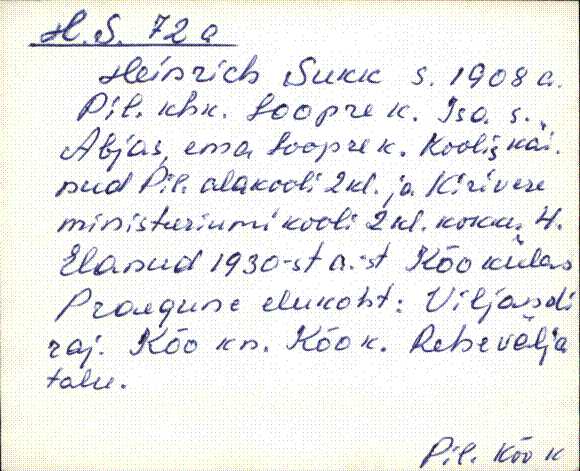 H.S. 72 a
Heinrich Sukk s. 1908 a.
Pil. khk. Soopre k. Isa s.
Abjas, ema Soopre k. Koolis käi-
nud Pil. alakooli 2 kl. ja Kirivere
ministeriumi kooli 2 kl. kokku 4.
Elanud 1930-st a.-st Kõo külas
Praegune elukoht: Viljandi
raj. Kõo kn. Kõo k. Rebevälja
talu.
Pil. Kõo k